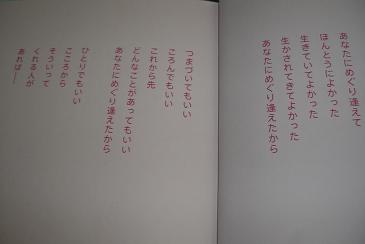 あなたにめぐり逢えて
ほんとうによかった
生きていてよかった
生かされてきてよかった
あなたにめぐり逢えたから
つまづいてもいい
ころんでもいい
これから先
どんなことがあってもいい
あなたにめぐり逢えたから
ひとりでもいい
こころから
そういって
くれる人が
あれば——